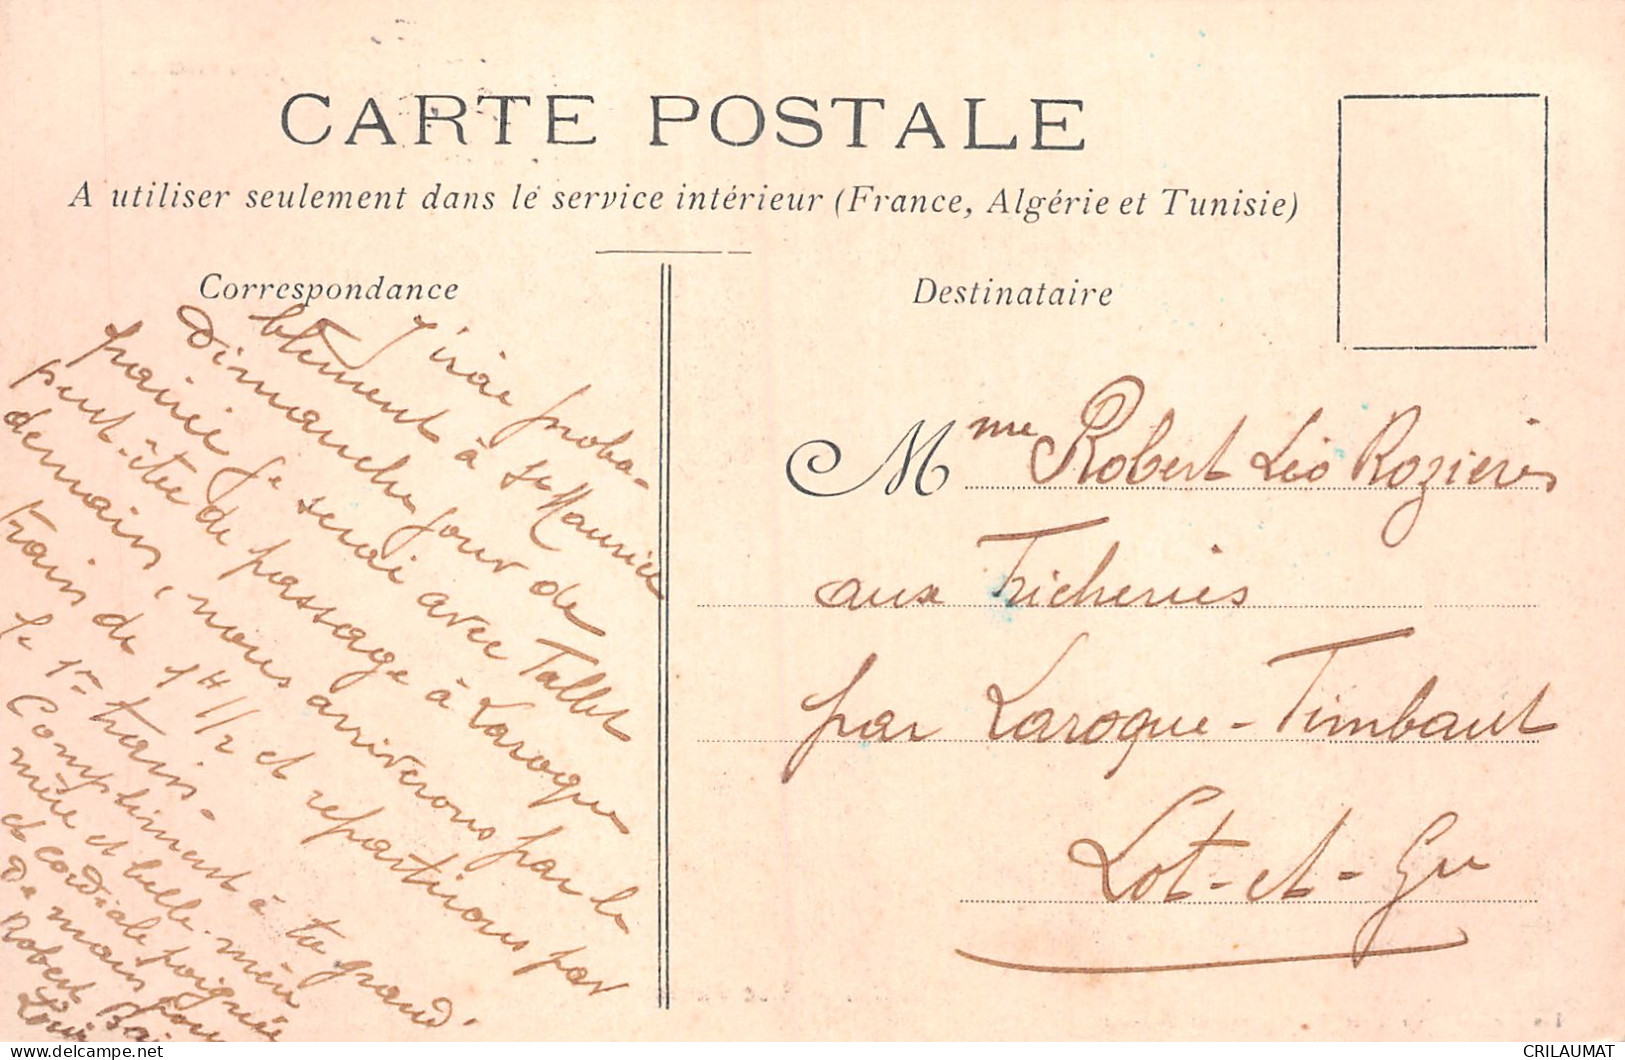 CARTE POSTALE
A utiliser seulement dans le service intérieur (France, Algérie et Tunisie)
Correspondance
Destinataire
J'irai proba-
blement à St Maurice
Dimanche jour de
prairie je serai avec Tallet
peut-être de passage à Laroque
demain, nous arriverons par le
train de 1 H 1/2 et repartirons par
le 1er train.
Compliment à ta grand'
mère et belle-mère
et cordiale poignée
de main pour
Robert
Louis
Mme Robert Léo Rozières
aux Tricheries
par Laroque-Timbaut
Lot-et-Gne
CRILAUMAT